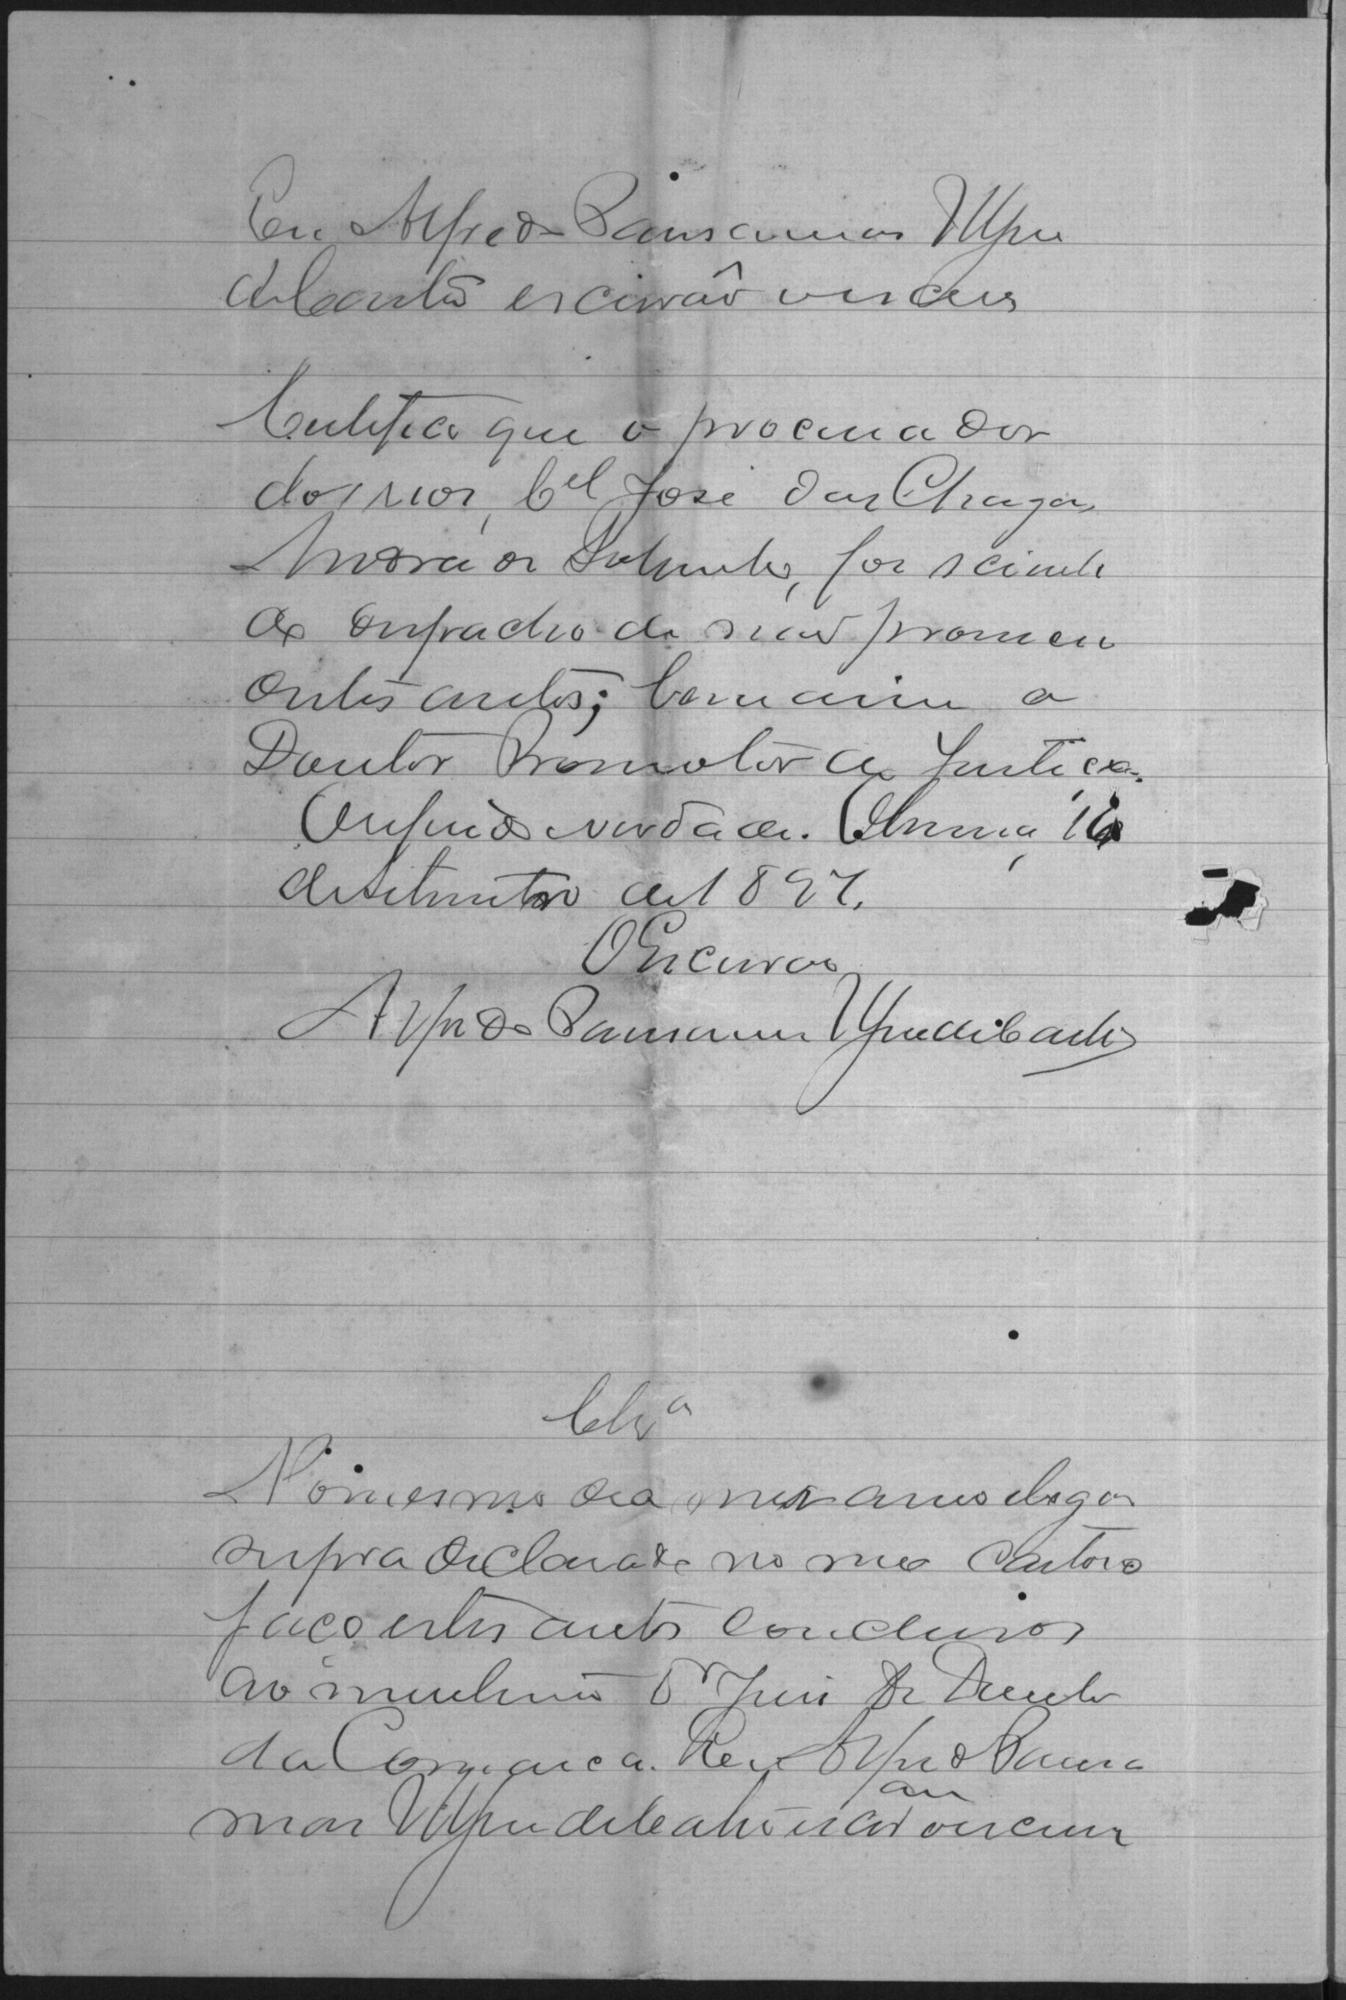 Eu Alfredo Pausanias
de Castro escrivão o escrevi
Certifico que o procurador
dos réos, Bel José das Chagas
foi sciente
do despacho de
estes autos; bem assim o
Doutor Promotor da Justiça.
O referido é verdade. 16
de Setembro de 1897.
O Escrivão
Alfredo Pausanias de Castro
Clsª
No mesmo dia mez anno e logar
supra declarado no meu cartorio
faço estes autos conclusos
ao meritissimo Dr Juiz de Direito
da Comarca. Eu Alfredo Pausa
nias de Castro escrivão o escrevi